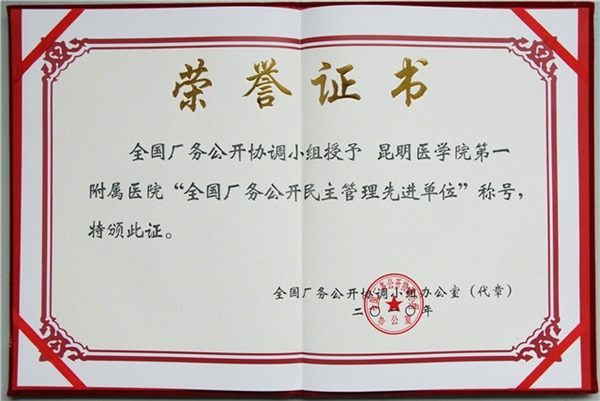 荣誉证书
全国厂务公开协调小组授予 昆明医学院第一
附属医院“全国厂务公开民主管理先进单位”称号，
特颁此证。
全国厂务公开协调小组办公室（代章）
二〇 〇年
全国厂务公开协调小组
办公室